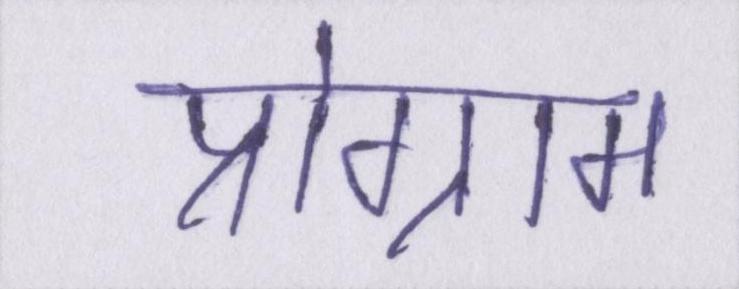 प्रोग्राम